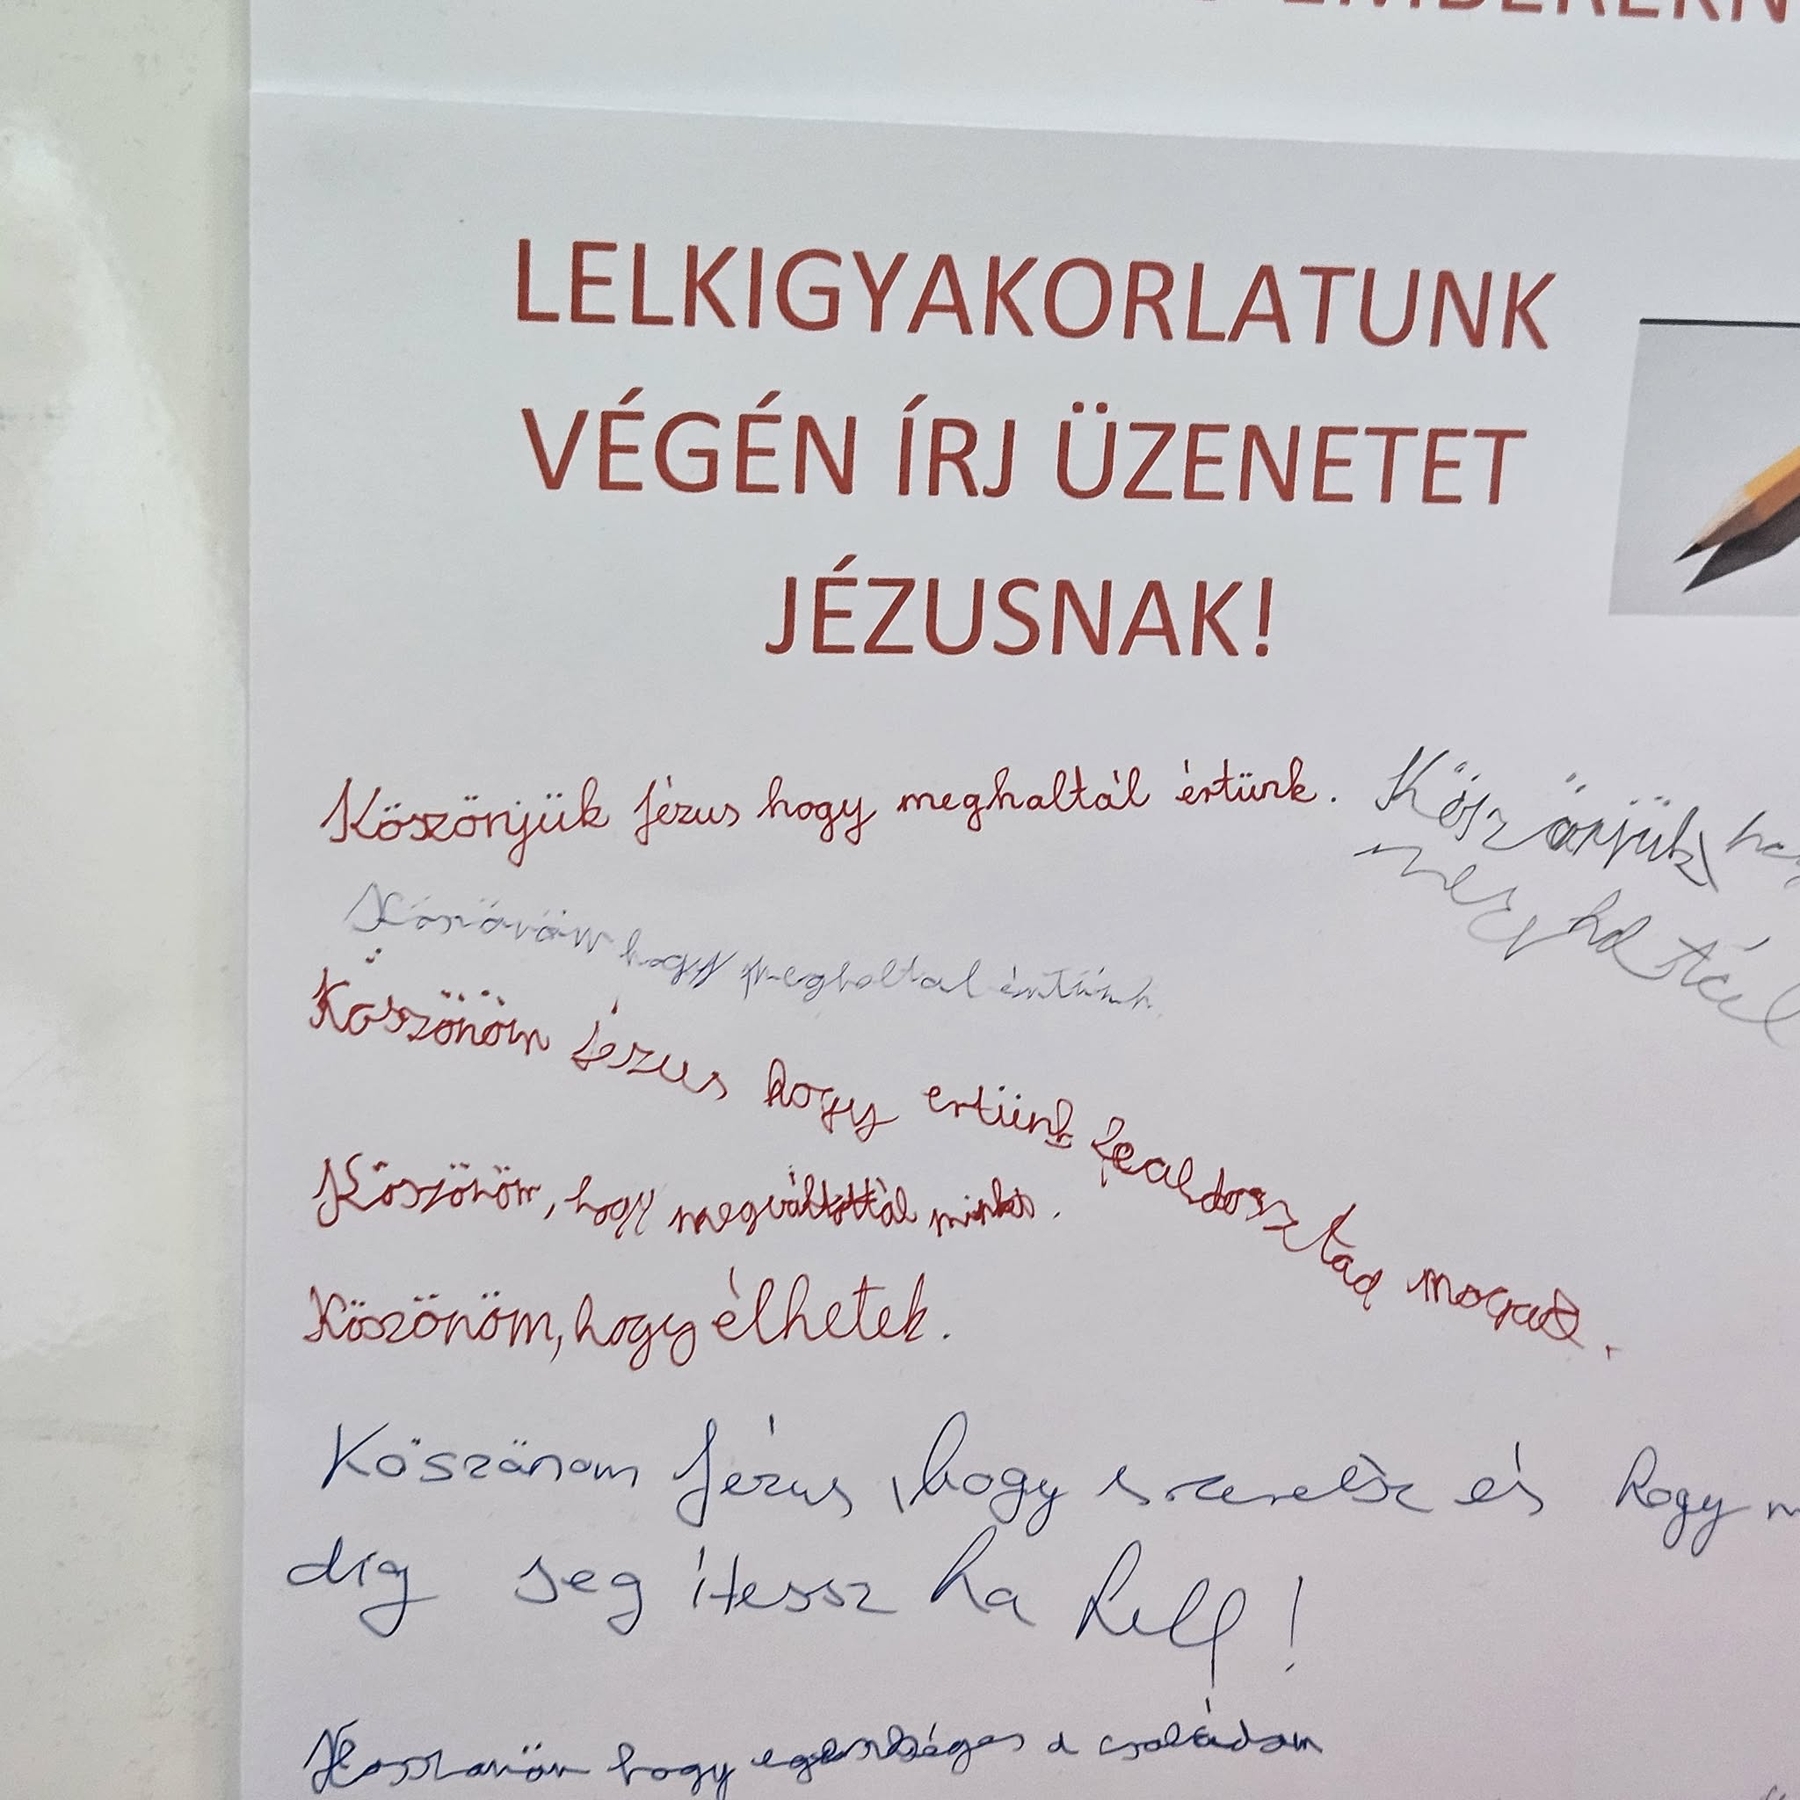 LELKIGYAKORLATUNK
VÉGÉN ÍRJ ÜZENETET
JÉZUSNAK!
Köszönjük Jézus hogy meghaltál értünk.
Köszönjük
meghaltál
Köszönöm hogy meghaltal értünk
Köszönöm Jézus hogy ertünk fealdosztad magad.
Köszönöm, hogy megváltottál minket.
Köszönöm, hogy élhetek.
Köszönöm Jézus, hogy szeretsz és hogy m
dig segítessz ha kell!
hogy egészséges a családom